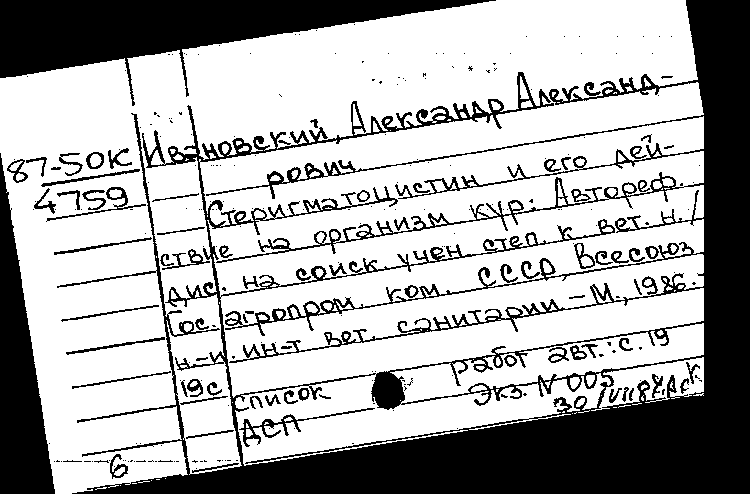 87-50К
4759
Ивановский, Александр Александ-
рович.
Стеригматоцистин и его дей-
ствие на организм кур: Автореф.
дис. на соиск. учен. степ. к. вет. н. /
Гос. агропром. ком. СССР, Всесоюз.
н.-и. ин-т вет. санитарии. - М., 1986. -
19с
список работ авт.: с. 19
ДСП Экз. N 005
30/VII
6